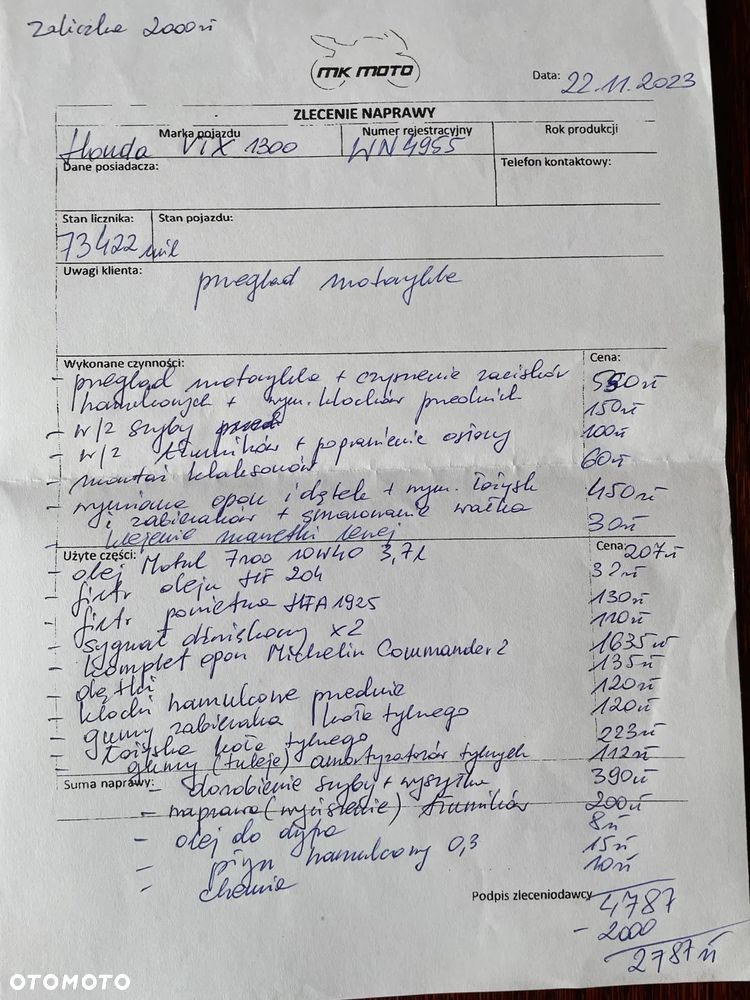 Zaliczka 2000zł
MK MOTO
Data: 22.11.2023
ZLECENIE NAPRAWY
Marka pojazdu Numer rejestracyjny Rok produkcji
Honda VTX 1300 WN4955
Dane posiadacza: Telefon kontaktowy:
Stan licznika: Stan pojazdu:
73422 mil
Uwagi klienta: przegląd motocykla
Wykonane czynności: Cena:
- przegląd motocykla + czyszczenie zacisków 550zł
hamulcowych + wym. klocków przednich
- w/z szyby przed 150zł
- w/z tłumików + poprawienie osłony 100zł
- montaż klaksonów 60zł
- wymiana opon i dętek + wym. łożysk 450zł
i zabieraków + smarowanie wałka
- klejenie manetki lewej 30zł
Użyte części: Cena:
- olej Motul 7100 10W40 3,7l 207zł
- filtr oleju HF 204 32zł
- filtr powietrza HFA1925 130zł
- sygnał dźwiękowy x2 110zł
- komplet opon Michelin Commander 2 1635zł
- dętki 135zł
- klocki hamulcowe przednie 120zł
- gumy zabieraka koła tylnego 120zł
- łożyska koła tylnego 223zł
- gumy (tuleje) amortyzatorów tylnych 112zł
Suma naprawy:
- dorobienie szyby + wysyłka 390zł
- naprawa (wyciszenie) tłumików 200zł
- olej do dyfra 8zł
- płyn hamulcowy 0,3 15zł
- chemia 10zł
Podpis zleceniodawcy
4787
- 2000
2787zł
OTOMOTO